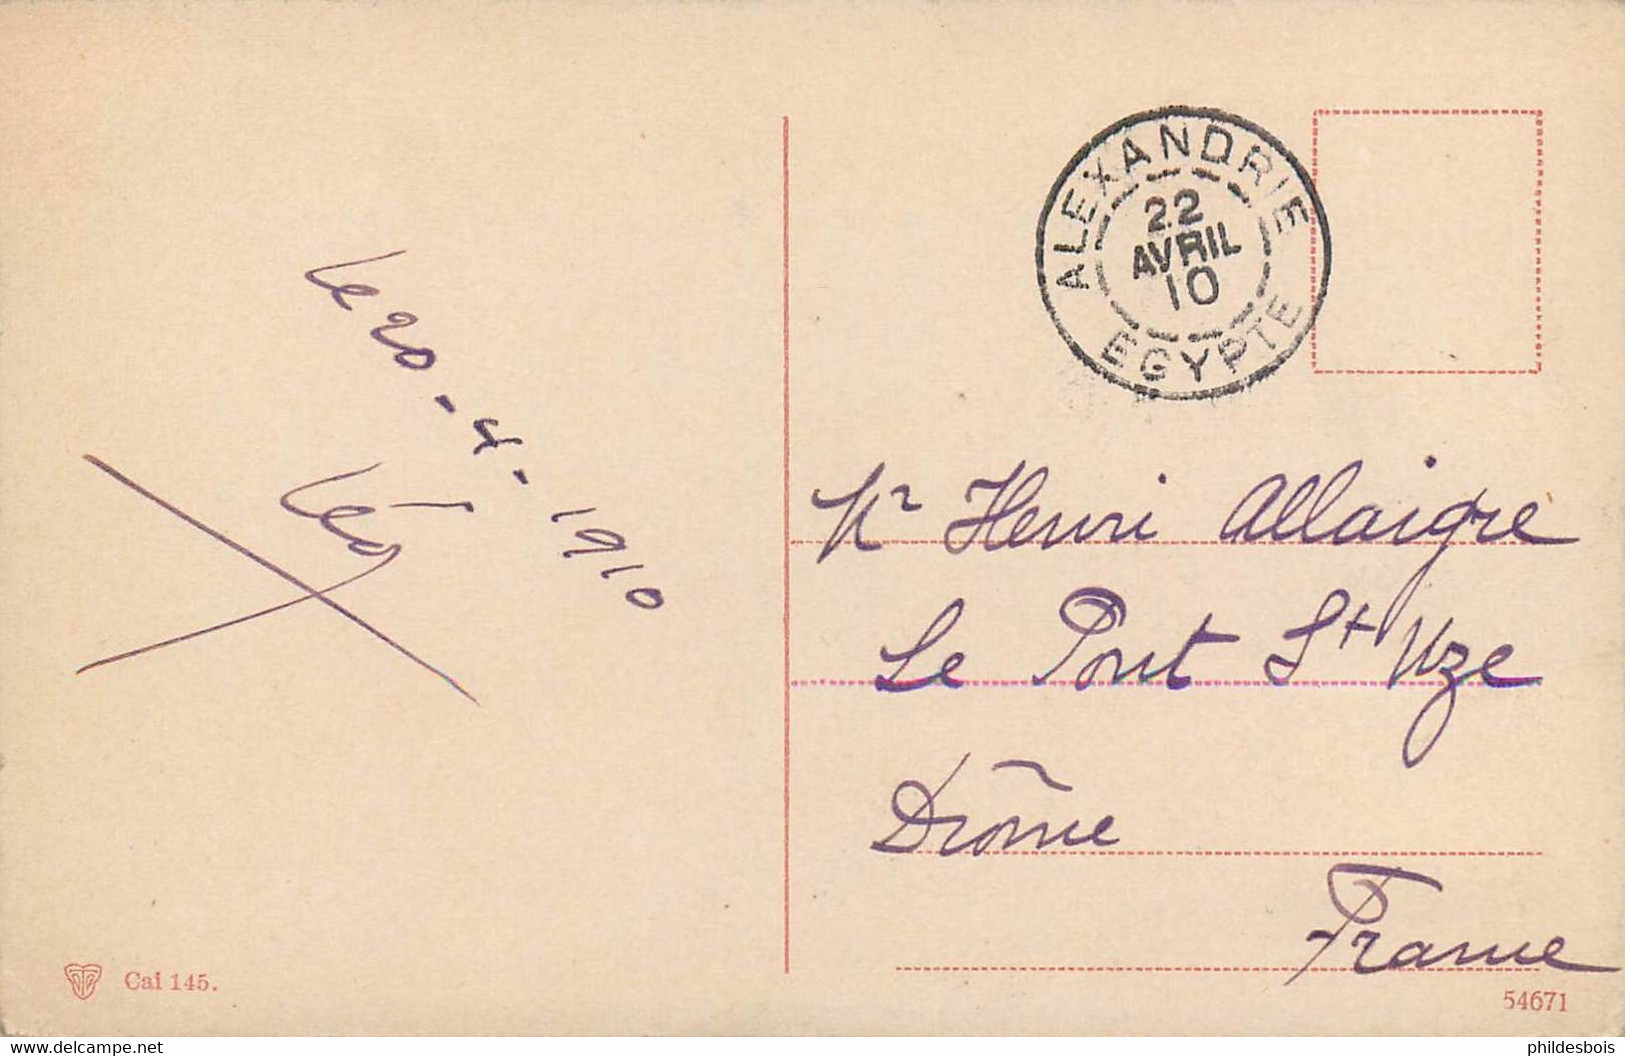 le 20-4-1910
Léo
ALEXANDRIE
22
AVRIL
10
EGYPTE
Mr Henri Allaigre
Le Pont St Uze
Drôme
France
Cai 145.
54671
https://www.delcampe.net
phildesbois